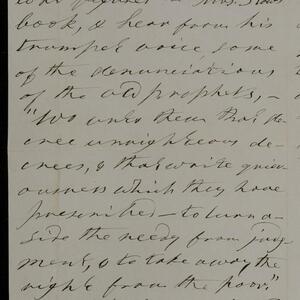 book, & hear from his
trumpet voice some
of the denunciations
of the old prophets, –
"Wo unto them that de-
cree unrighteous de-
crees, & that write griev-
ousness which they have
prescribed – to turn a-
side the needy from judg
ment, & to take away the
right from the poor."